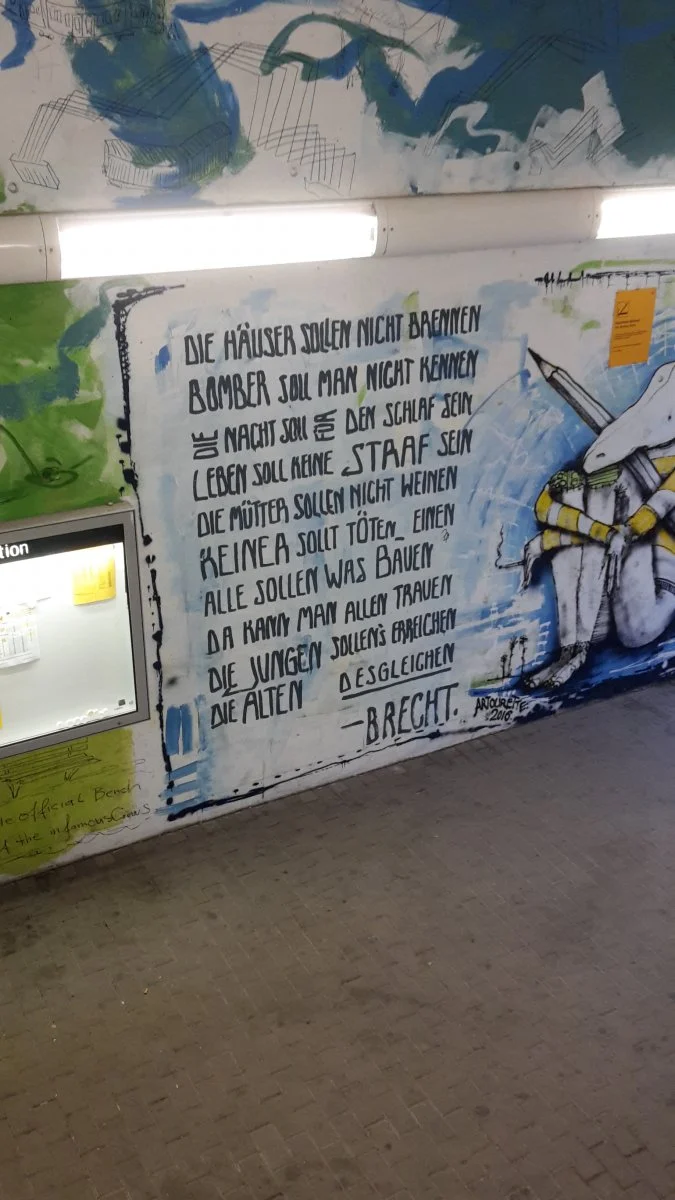 DIE HÄUSER SOLLEN NICHT BRENNEN
BOMBER SOLL MAN NICHT KENNEN
DIE NACHT SOLL FÜR DEN SCHLAF SEIN
LEBEN SOLL KEINE STRAF SEIN
DIE MÜTTER SOLLEN NICHT WEINEN
KEINER SOLLT TÖTEN EINEN
ALLE SOLLEN WAS BAUEN
DA KANN MAN ALLEN TRAUEN
DIE JUNGEN SOLLEN'S ERREICHEN
DIE ALTEN DESGLEICHEN
–BRECHT.
ARTOUR
2016
tion
official Bench
the infamous